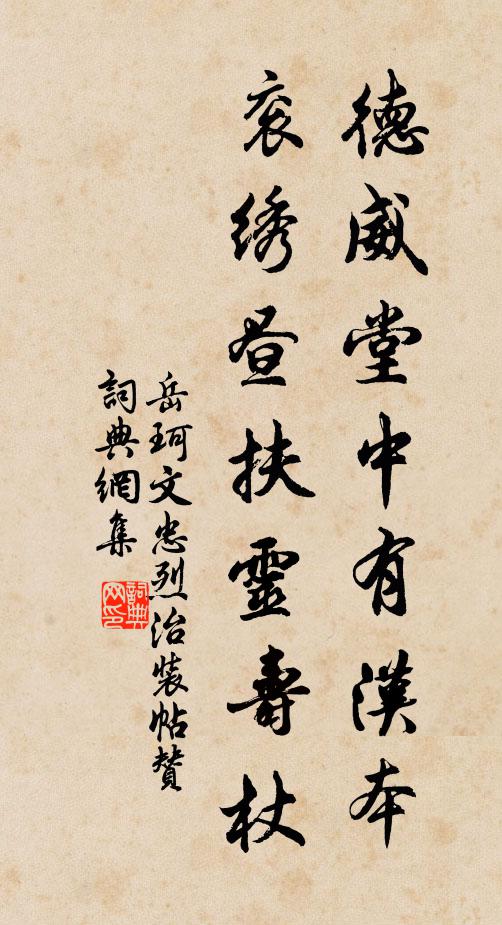 德威堂中有漢本
衮綉昼扶靈壽杖
岳珂文忠烈治裝帖贊
詞典網集
詞典网印